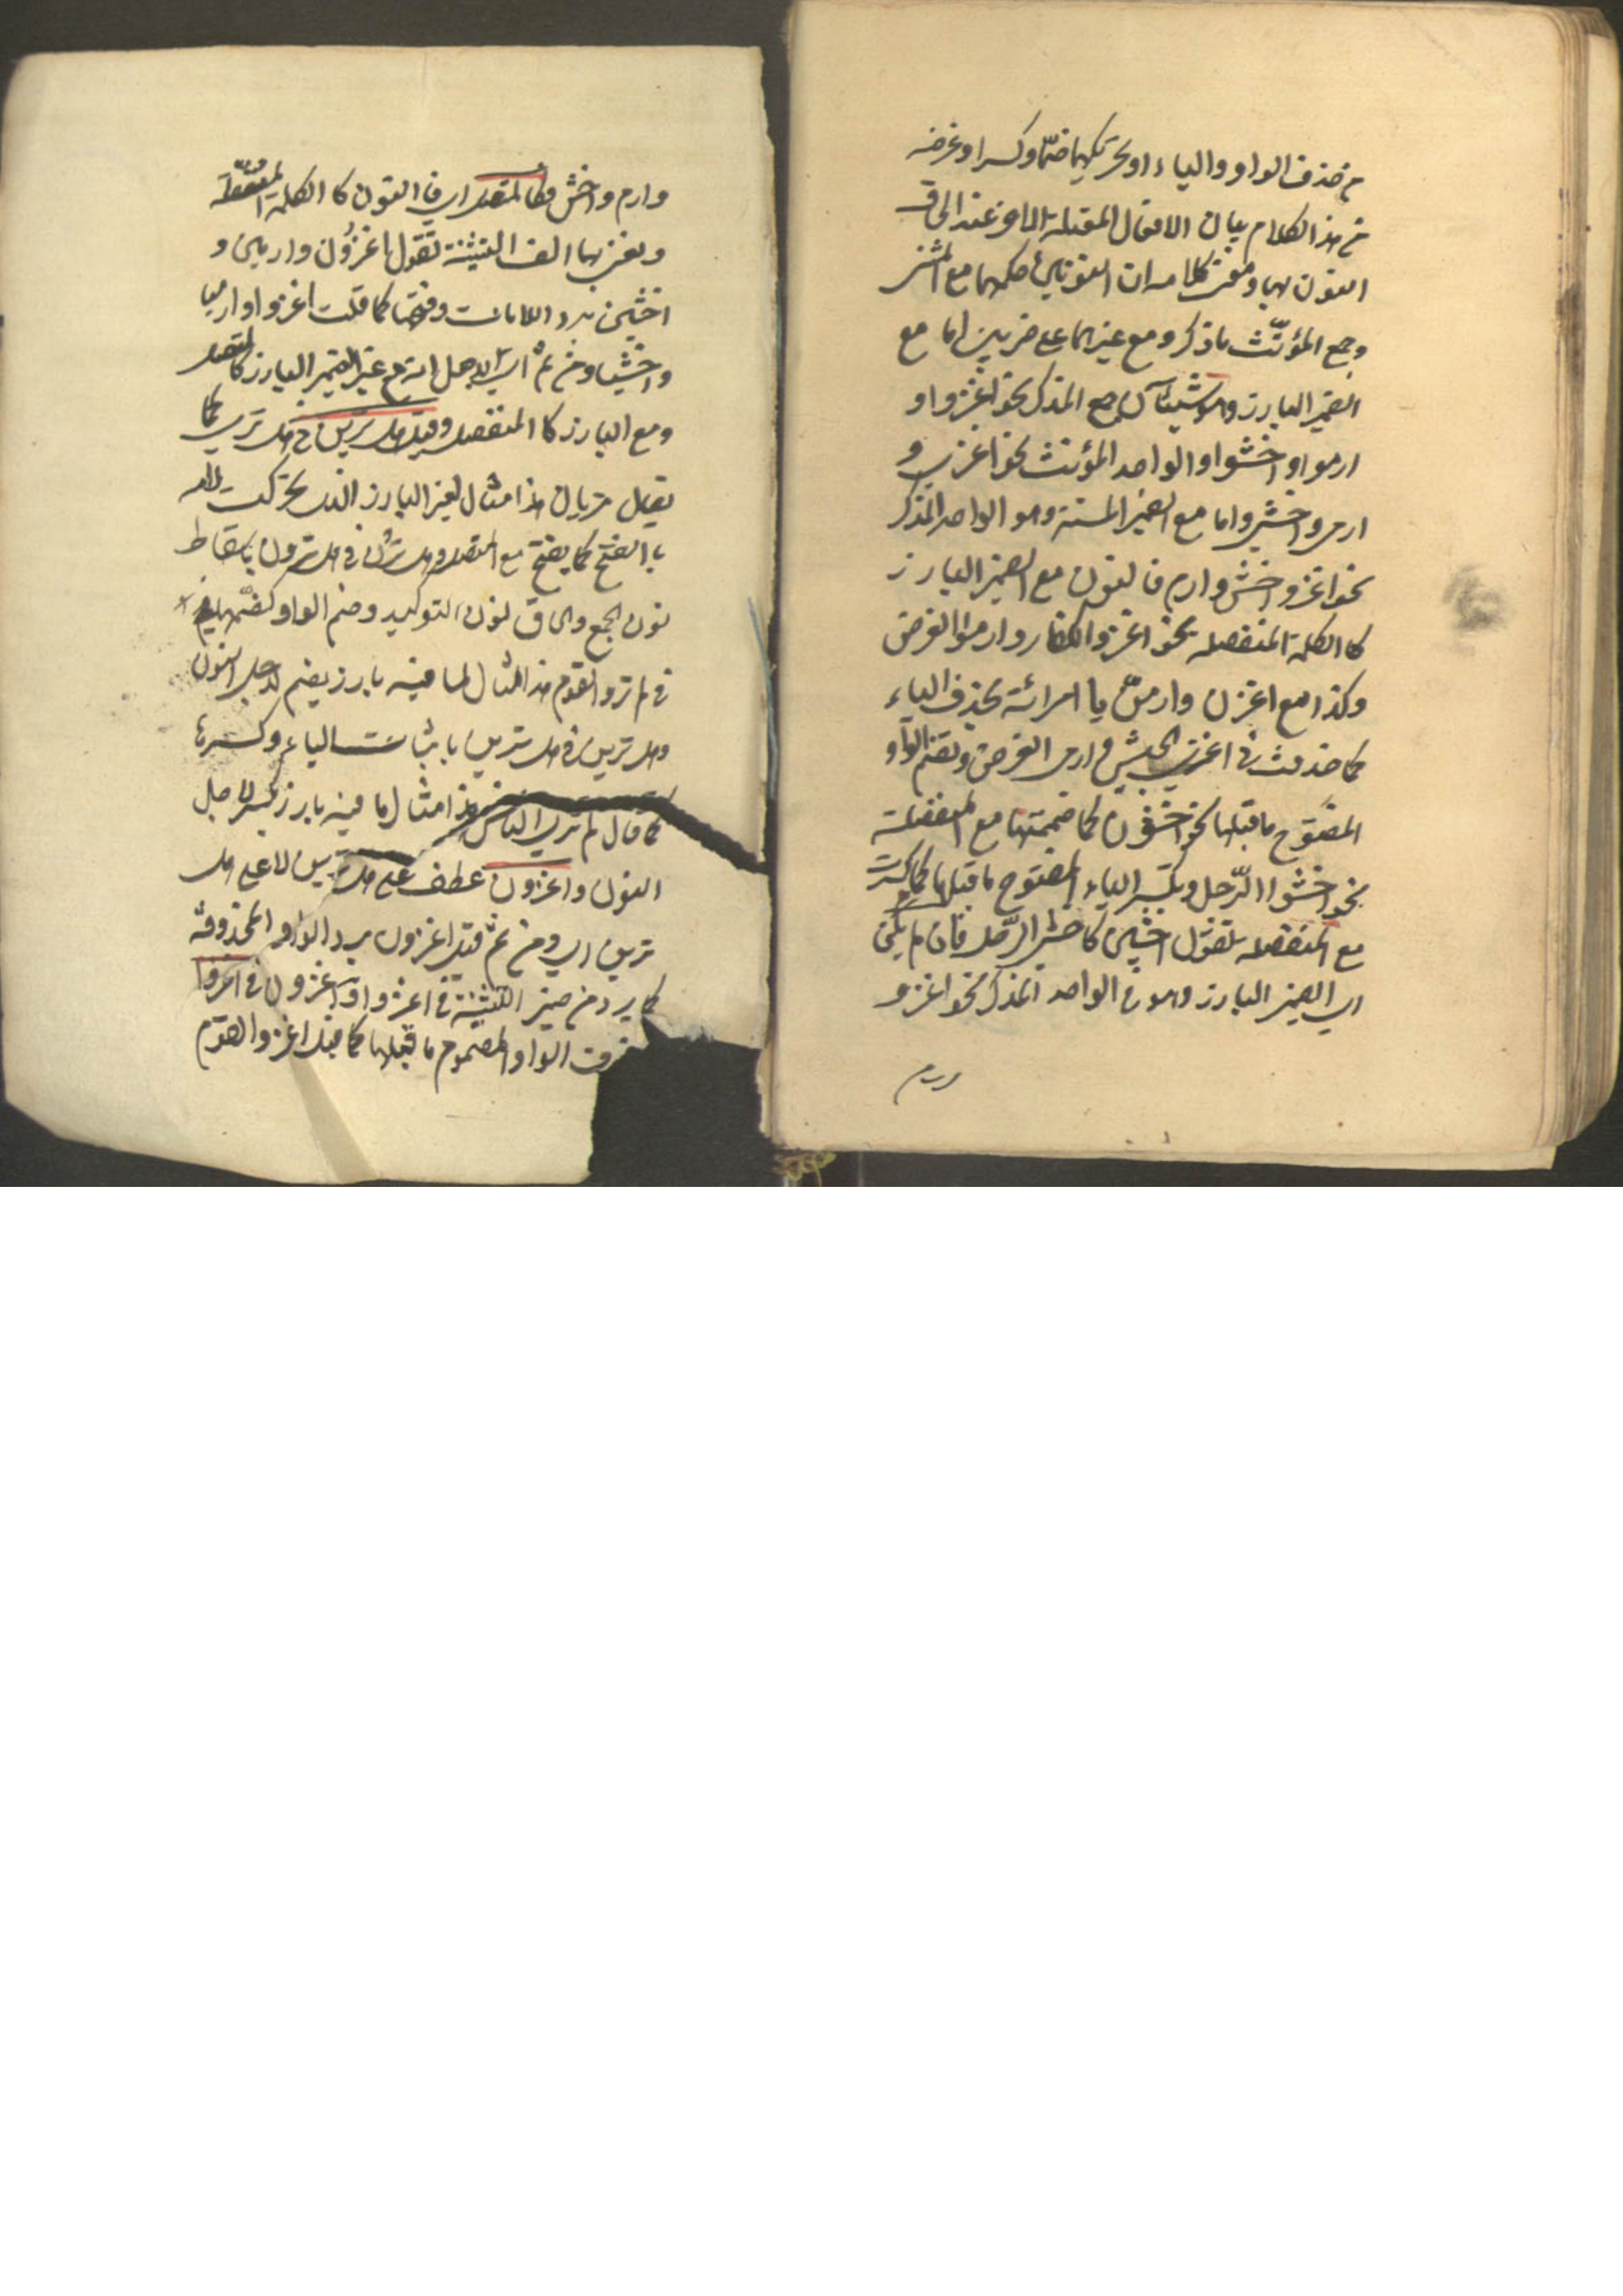 من حذف الواو والياء او تحريكهما ضمّا وكسرا وغرضه
من هذا الكلام بيان الافعال المعتلة الاخر عند الحاق
النون بها ومعنى كلامه ان النونين حكمهما مع المثنى
وجمع المؤنّث ما ذكر ومع غيرهما على ضربين اما مع
الضمير البارز وهو شيئان جمع المذكر نحو اغزوا و
ارموا واخشوا والواحد المؤنث نحو اغزي و
ارمي واخشي واما مع الضمير المستتر وهو الواحد المذكر
نحو اغز واخش وارم فالنون مع الضمير البارز
كالكلمة المنفصلة نحو اغزوا الكفار وارموا الغرض
وكذا مع اغزن وارمن يا امرأة بحذف الياء
كما حذفت في اغزي الجيش وارمي الغرض وتضم الواو
المفتوح ما قبلها نحو اخشون كما ضممتها مع المنفصلة
نحو اخشوا الرّجل وتكسر الياء المفتوح ما قبلها كما كسرت
مع المنفصلة تقول اخشين كاخشي الرّجل فان لم يكن
اي الضمير البارز وهو في الواحد المذكر نحو اغز و
وارم واخش فكالمتصل اي فالنون كالكلمة المتصلة
ويعني بها الف التثنية تقول اغزون وارمين و
اخشين برد اللامات وفتحها كما قلت اغزوا وارميا
واخشيا ومن ثم اي لاجل انه مع غير الضمير البارز كالمتصل
ومع البارز كالمنفصل وقيل هل ترين في هل ترى كما
يقال تريان هذا مثال لغير البارز الذي تحركت لامه
بالفتح كما يفتح مع المتصل وهل ترون في هل ترون باسقاط
نون الجمع والحاق نون التوكيد وضم الواو كضمها
في لم تروا القوم هذا مثال لما فيه بارز يضم لاجل النون
وهل ترين في هل ترين باثبات الياء وكسرها
كما قال لم تري الناس هذا مثال لما فيه بارز يكسر لاجل
النون واغزون عطف على هل ترين لا على هل
ترين اي ومن ثم قيل اغزون برد الواو المحذوفة
كما يرد من ضمير التثنية في اغزوا واغزون في اغزوا
الواو المضموم ما قبلها كما قيل اغزوا القوم